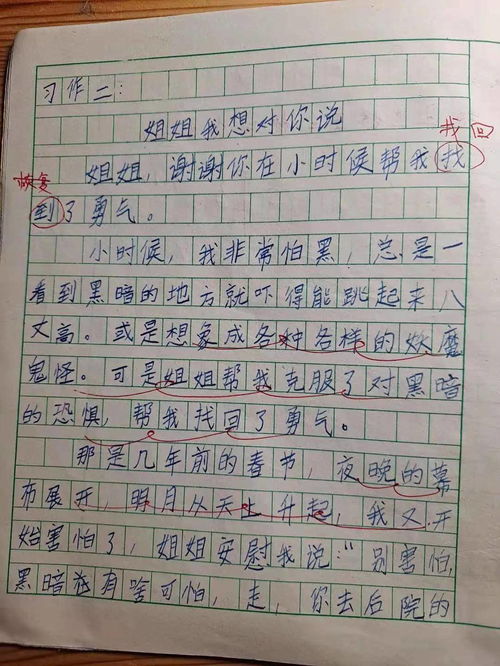 习作二：
姐姐我想对你说
找回
姐姐，谢谢你在小时候帮我找
恢复
到了勇气。
小时候，我非常怕黑，总是一
看到黑暗的地方就吓得能跳起来八
丈高。或是想象成各种各样的妖魔
鬼怪。可是姐姐帮我克服了对黑暗
的恐惧，帮我找回了勇气。
那是几年前的春节，夜晚的幕
布展开，明月从天上升起，我又开
始害怕了，姐姐安慰我说：“别害怕，
黑暗有啥可怕，走，你去后院的